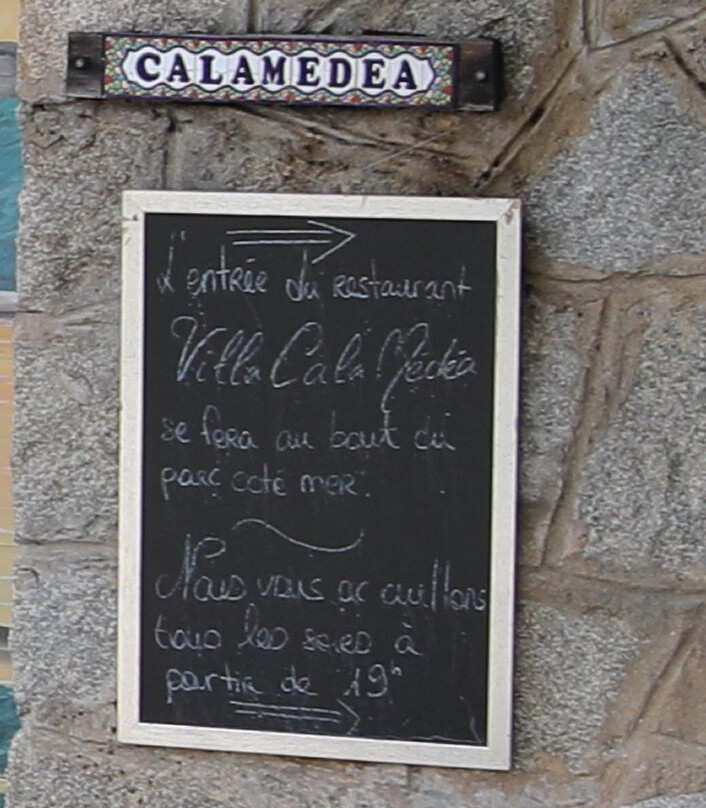 CALAMEDEA
L'entrée du restaurant
Villa Cala Médéa
se fera au bout du
parc coté mer.
Nous vous accuillons
tous les soirs à
partir de 19h